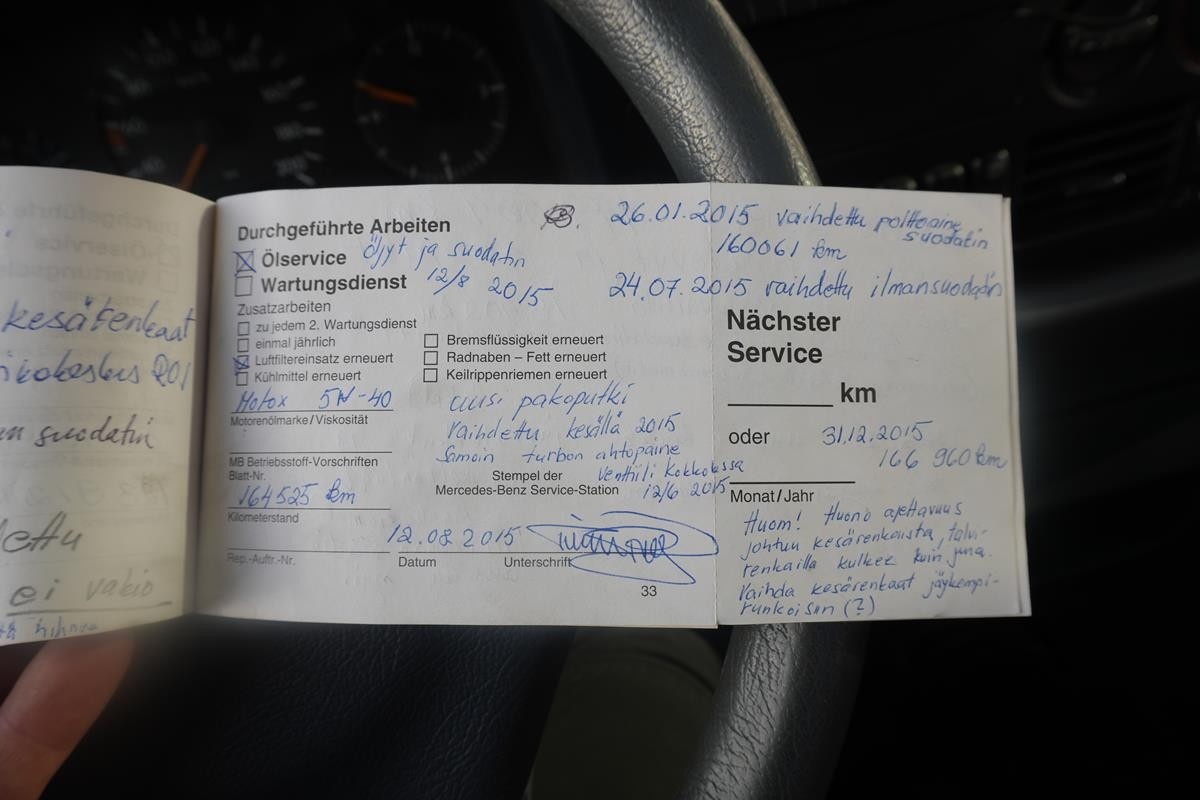 kesätenkaat
suodatin
ei vakio
Durchgeführte Arbeiten
Ölservice öljyt ja suodatin
Wartungsdienst 12/8 2015
Zusatzarbeiten
zu jedem 2. Wartungsdienst
einmal jährlich
Luftfiltereinsatz erneuert
Kühlmittel erneuert
Bremsflüssigkeit erneuert
Radnaben – Fett erneuert
Keilrippenriemen erneuert
Motox 5W-40
Motorenölmarke/Viskosität
MB Betriebsstoff-Vorschriften
Blatt-Nr.
164525 km
Kilometerstand
Rep.-Auftr.-Nr.
uusi pakoputki
Vaihdettu kesällä 2015
Samoin turbon ahtopaine
venttiili Kokkolassa
12/6 2015
Stempel der
Mercedes-Benz Service-Station
12.08.2015
Datum Unterschrift
33
26.01.2015 vaihdettu polttoaine
suodatin
160061 km
24.07.2015 vaihdettu ilmansuodatin
Nächster
Service
km
oder 31.12.2015
166 960 km
Monat/Jahr
Huom! Huono ajettavuus
johtuu kesärenkaista, talvi-
renkailla kulkee kuin juna.
Vaihda kesärenkaat jäykempi-
runkoisiin (?)